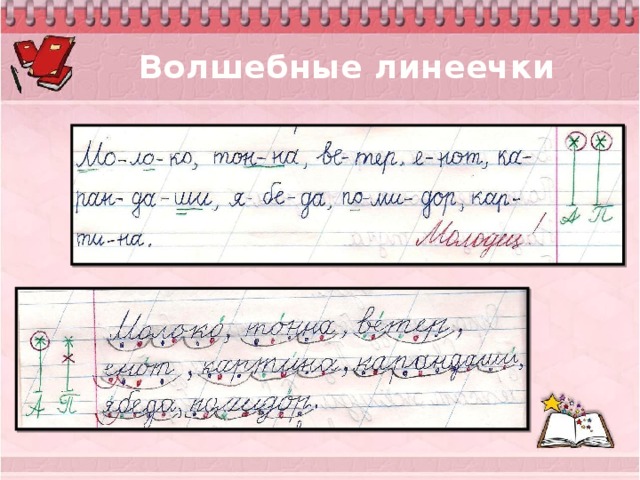 Волшебные линеечки
Мо-ло-ко, тон-на, ве-тер, е-нот, ка-
ран-да-ши, я-бе-да, по-ми-дор, кар-
ти-на.
Молодец!
А П
Молоко, тонна, ветер,
енот, картина, карандаши,
ябеда, помидор.
А П